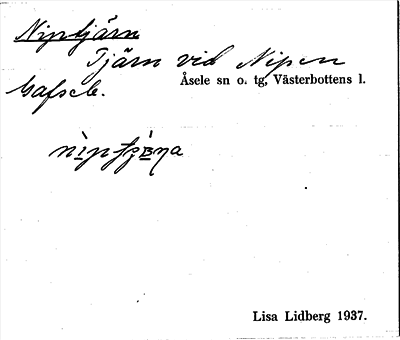 Niptjärn
Tjärn vid Nipen
Åsele sn o. tg, Västerbottens l.
Gafsele.
Lisa Lidberg 1937.